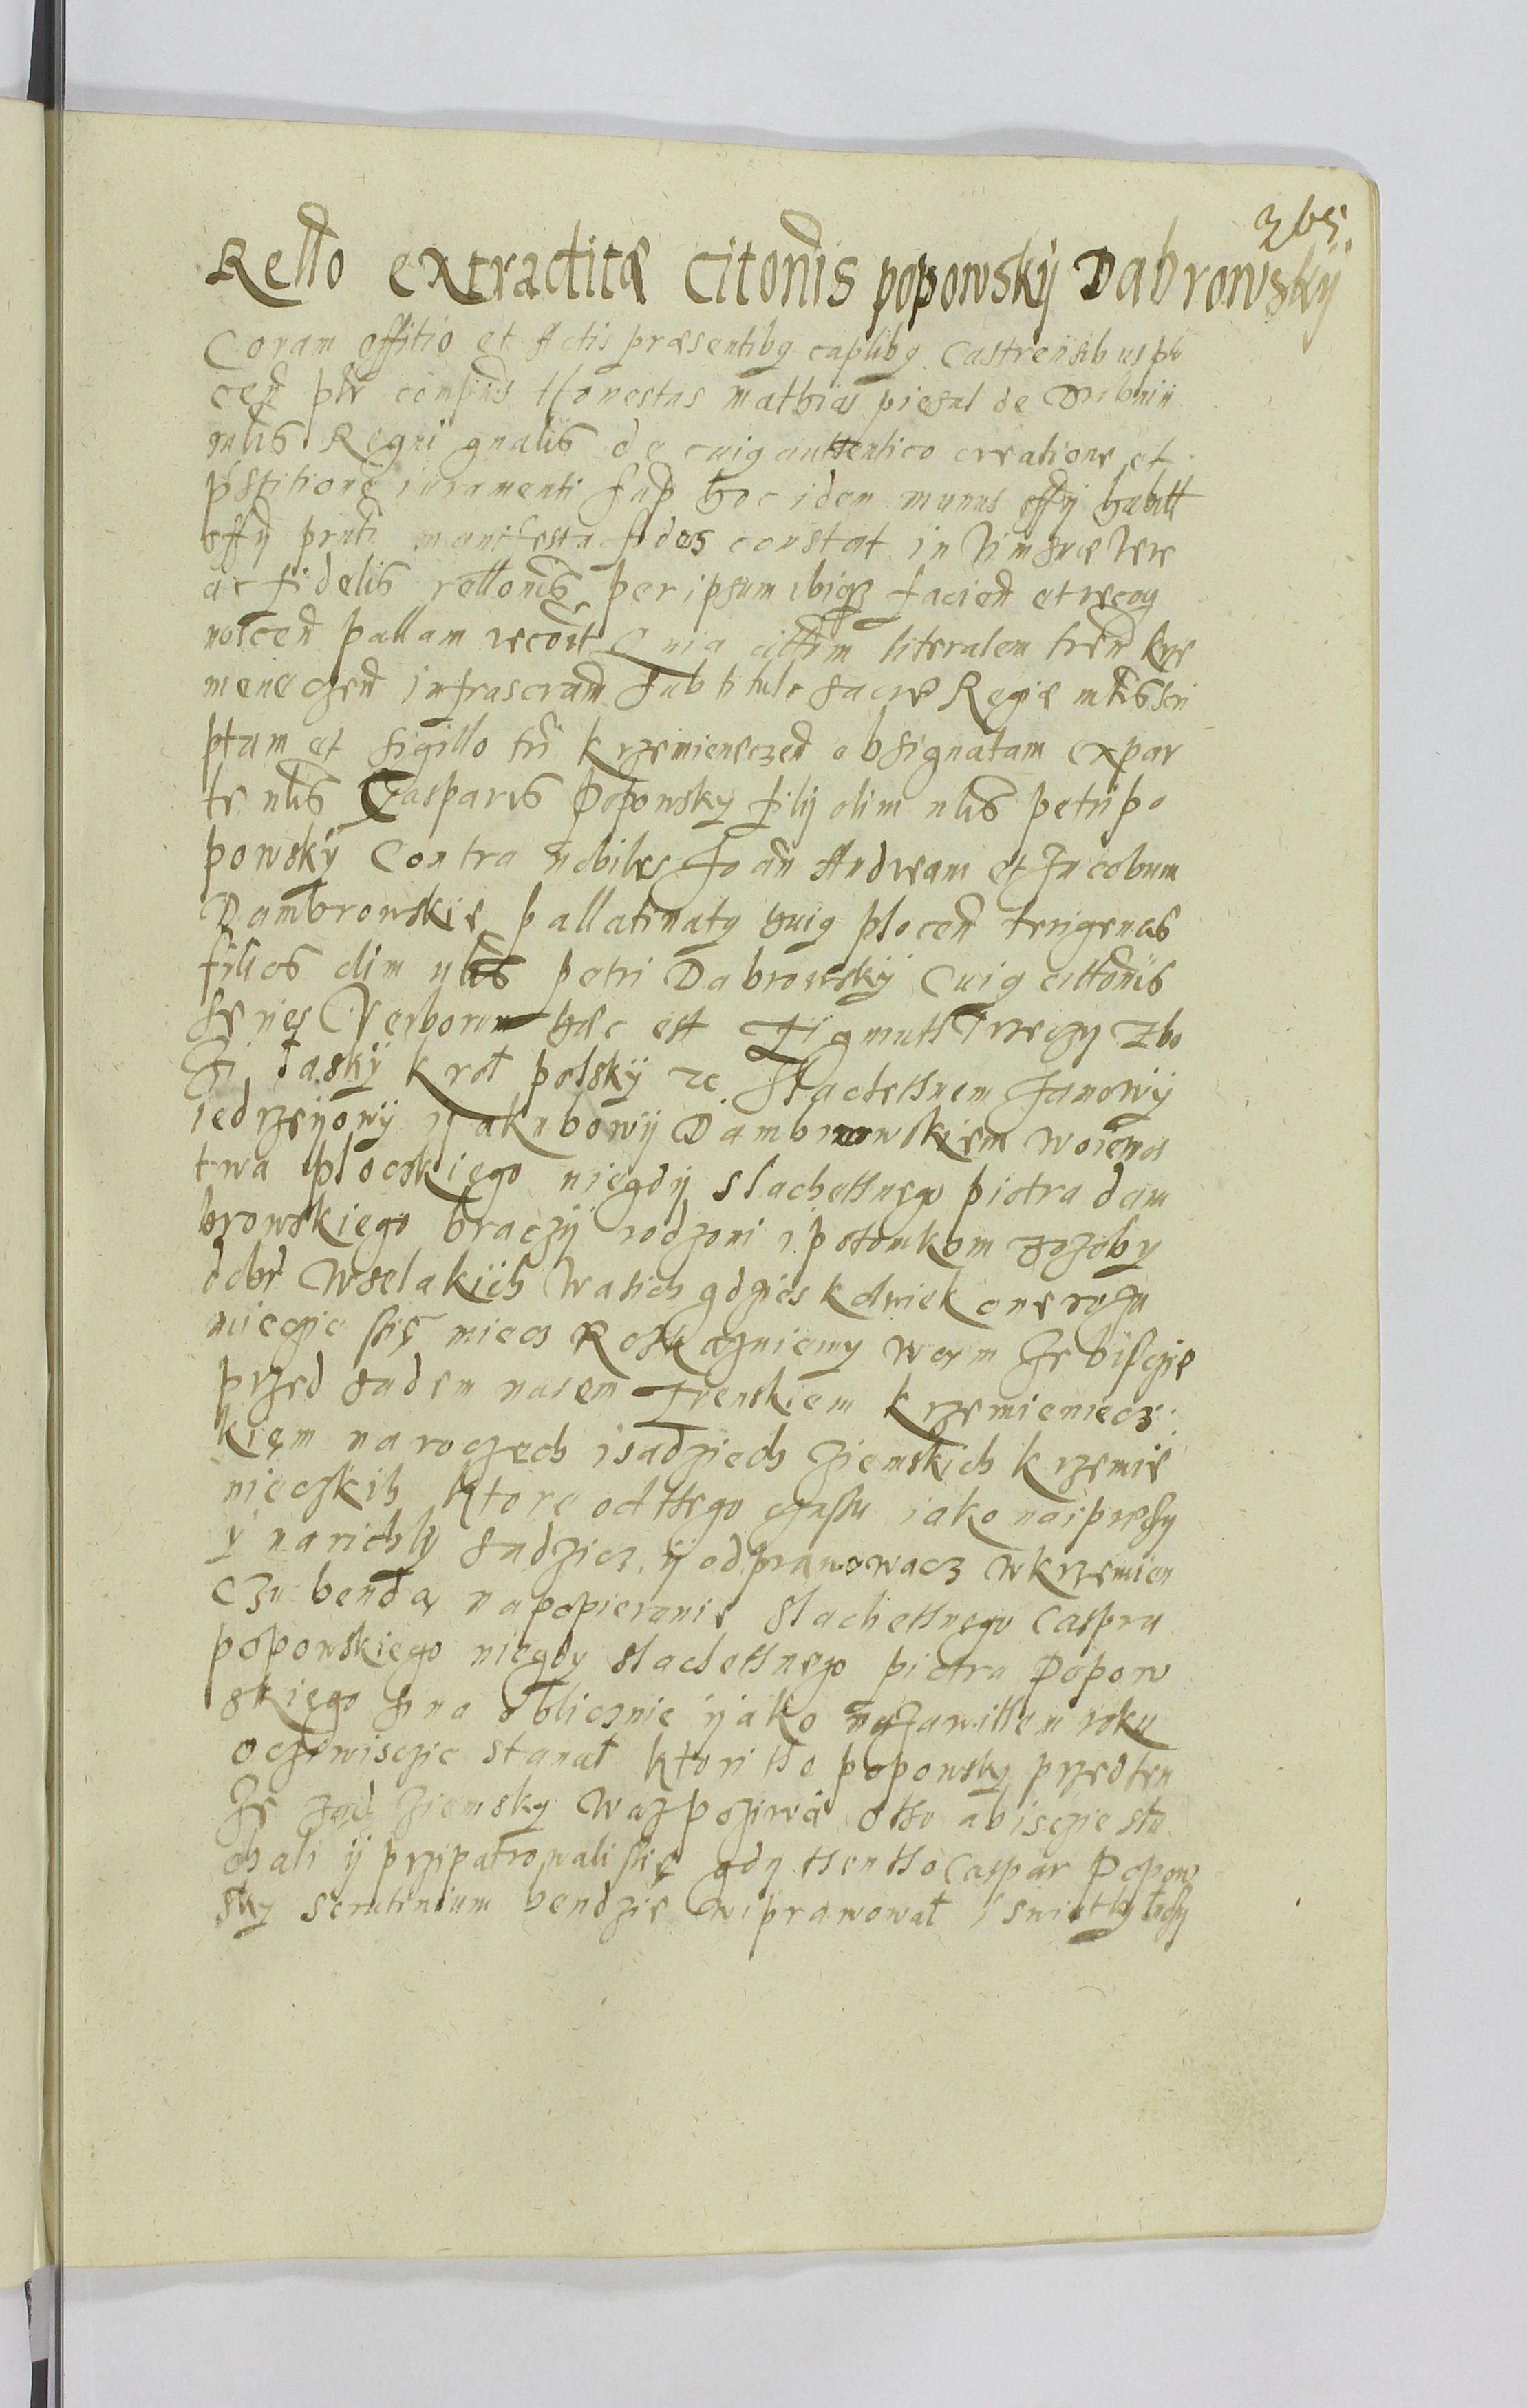 365.
Rello extraditæ Citonis popowskÿ Dabrowskÿ
Coram offitio et Actis præsentibq caplibq Castrensibus plo
cen plr compns Honestus mathias piesal de
mlis Regni gnalis de cuiq auttentico creatione et
pstitione iuramenti sup hoc idem munus offÿ habitt
offÿ prnti manifesta fides constat in Vim suæ Vere
ac fidelis rellonis per ipsum ibiqz facien et recog
noscen pallam recoït Quia cittom literalem trem krze
meneczen infrascram sub titulo sacre Regie mtis scri
ptam et sigillo tri krzemieneczen obsignatam expar
te nlis Casparis Popowsky filÿ olim nlis petri po
powskÿ Contra nobiles Joan Andream et Jacobum
Dambrowskie pallatinatq huiq plocen terrigenas
filios olim nlis petri Dabrowskÿ Cuiq cittonis
series Verborum hæc est Zigmutt trzeczy zbo
zi łaskÿ krol polskÿ zc slachethnem Janowÿ
iedrzeÿowÿ ÿ akubowÿ Dambrowskiem woiewoc
twa ploczkiego niegdÿ slachethnego piotra dam
browskiego braczÿ rodzoni i potomkom zozoby
dobr Wselakiih Wasich gdzies kolwiek one rozu
miecie sie miecz Roskazuiemy wam ze biscie
przed sadem nasem Zienskiem krzemieniecz:
kiem na roczech i sadziech ziemskich krzemie
nieczkih ktore odthego czassu iako naipresy
ÿ narichly sadzicz ÿ odprawowacz w krzemien
czu benda na popieranie slachethnego Caspra
popowskiego niegdy slachethnego piotra Popow
skiego sina oblicznie ÿ ako na zawittem roku
oczewisczie stanał ktori tho popowsky przed ten
ze zad ziemsky Waz poziwa o tho abiscie slu
chali ÿ przipatrowali sie gdy thentho Caspar Popow
sky scrutinium bendzie wiprawowal i swiatky